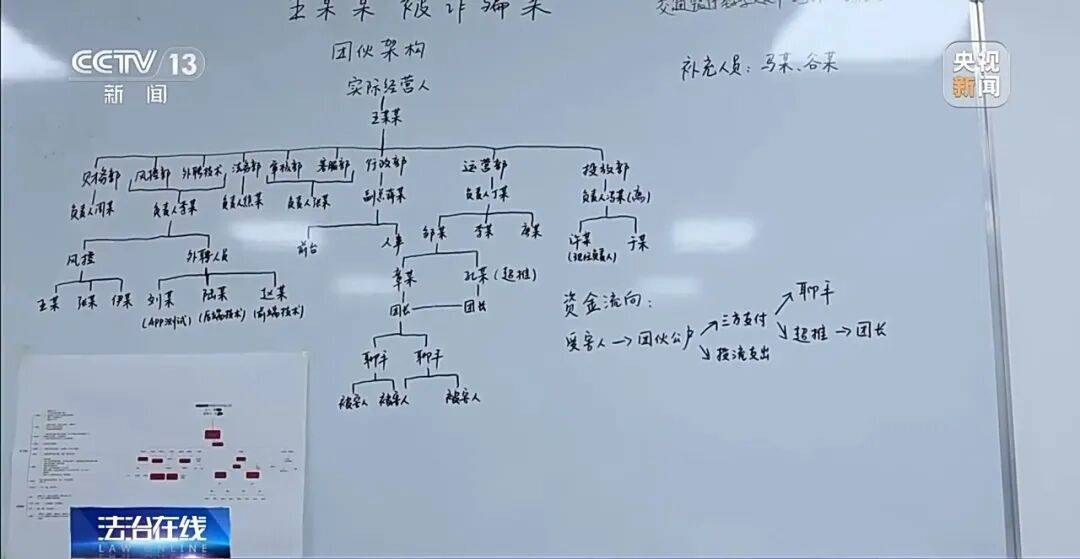 王某某被诈骗案
CCTV 13
新闻
央视
新闻
团伙架构
实际经营人
王某某
补充人员：马某、谷某
财务部 风控部 外聘技术 法务部 审核部 客服部 行政部 运营部 投放部
负责人周某 负责人李某 负责人焦某 负责人张某 副总薛某 负责人丁某 负责人冯某(离)
前台 人事 邹某 李某 唐某 许某 于某
(现任负责人)
风控 外聘人员 章某 孔某(超推)
王某 陆某 伊某 刘某 陆某 赵某
(APP测试) (后端技术) (前端技术)
团长 团长
聊手 聊手
被害人 被害人 被害人
资金流向：
受害人→团伙公户 三方支付 聊手
投流支出 超推→团长
法治在线
LAW ONLINE